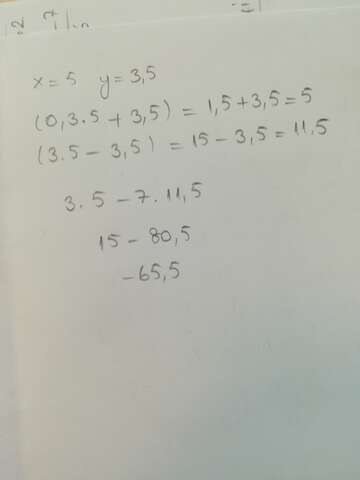 x = 5 y = 3,5
(0,3.5 + 3,5) = 1,5 + 3,5 = 5
(3.5 - 3,5) = 15 - 3,5 = 11,5
3.5 - 7.11,5
15 - 80,5
-65,5